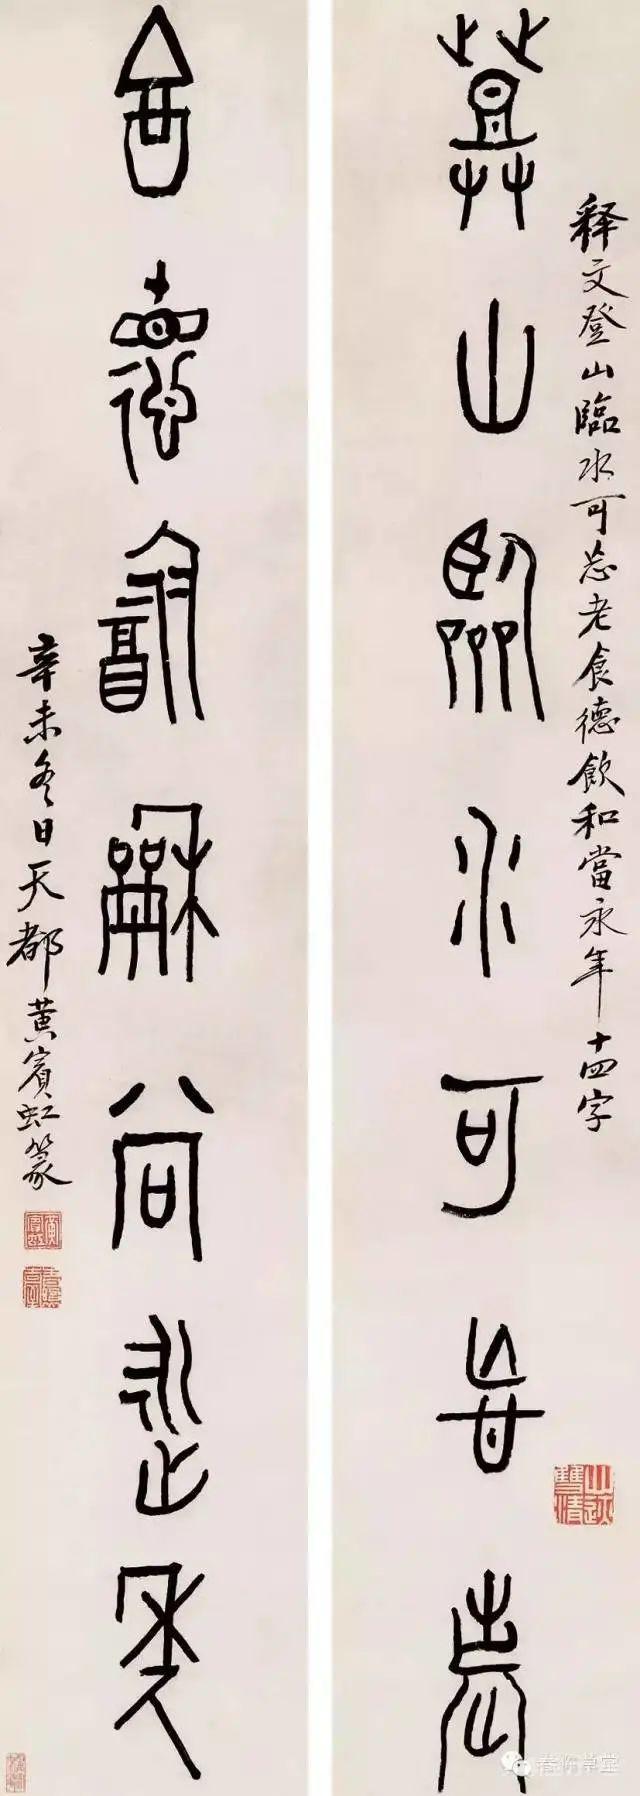 释文登山臨水可忘老食德飲和當永年十四字
登山臨水可忘老
食德飲和當永年
辛未冬日天都黄賓虹篆